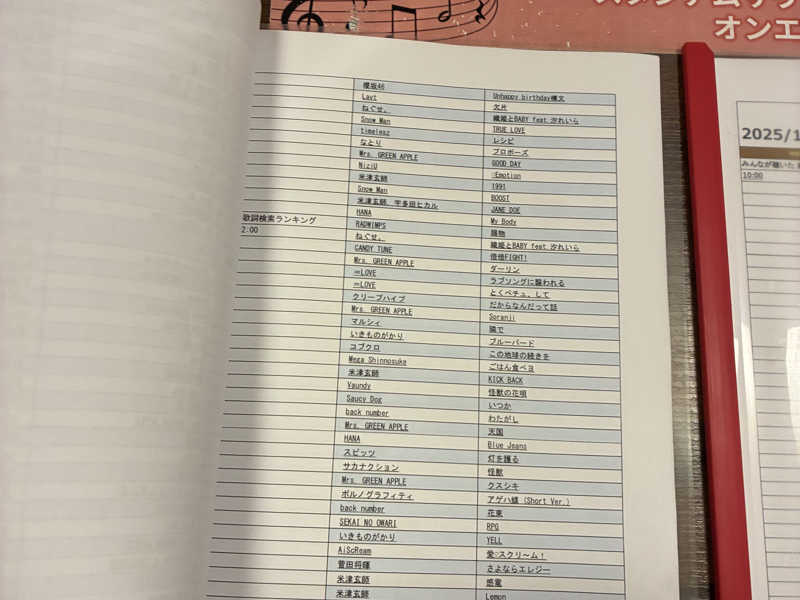 オンエ
櫻坂46 Unhappy birthday構文
Lavt 欠片
ねぐせ。 織姫とBABY feat.汐れいら
Snow Man TRUE LOVE
timelesz レシピ
なとり プロポーズ
Mrs. GREEN APPLE GOOD DAY
NiziU ♡Emotion
米津玄師 1991
Snow Man BOOST
米津玄師, 宇多田ヒカル JANE DOE
HANA My Body
歌詞検索ランキング RADWIMPS 賜物
2:00 ねぐせ。 織姫とBABY feat.汐れいら
CANDY TUNE 倍倍FIGHT!
Mrs. GREEN APPLE ダーリン
=LOVE ラブソングに襲われる
=LOVE とくべチュ、して
クリープハイプ だからなんだって話
Mrs. GREEN APPLE Soranji
マルシィ 隣で
いきものがかり ブルーバード
コブクロ この地球の続きを
Mega Shinnosuke ごはん食べヨ
米津玄師 KICK BACK
Vaundy 怪獣の花唄
Saucy Dog いつか
back number わたがし
Mrs. GREEN APPLE 天国
HANA Blue Jeans
スピッツ 灯を護る
サカナクション 怪獣
Mrs. GREEN APPLE クスシキ
ポルノグラフィティ アゲハ蝶 (Short Ver.)
back number 花束
SEKAI NO OWARI RPG
いきものがかり YELL
AiScReam 愛♡スクリ～ム！
菅田将暉 さよならエレジー
米津玄師 感電
米津玄師 Lemon
2025/1
みんなが聴いた
10:00